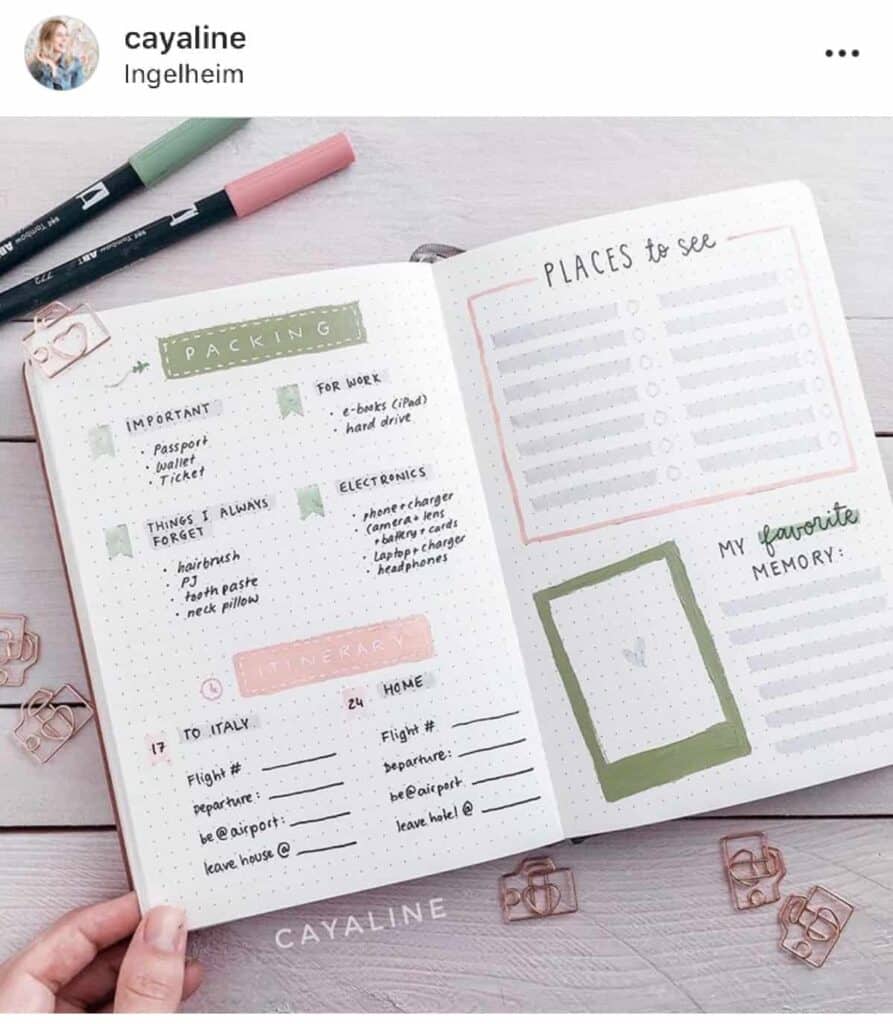 cayaline
Ingelheim
Tombow ABT
Tombow ABT
772
PACKING
IMPORTANT
• Passport
• Wallet
• Ticket
FOR WORK
• e-books (iPad)
• hard drive
THINGS I ALWAYS
FORGET
• hairbrush
• PJ
• tooth paste
• neck pillow
ELECTRONICS
• phone + charger
• camera + lens
+ battery + cards
• Laptop + charger
• headphones
ITINERARY
17 TO ITALY
Flight #
Departure:
be @ airport:
leave house @
24 HOME
Flight #
Departure:
be @ airport:
leave hotel @
PLACES to see
MY favorite
MEMORY:
CAYALINE